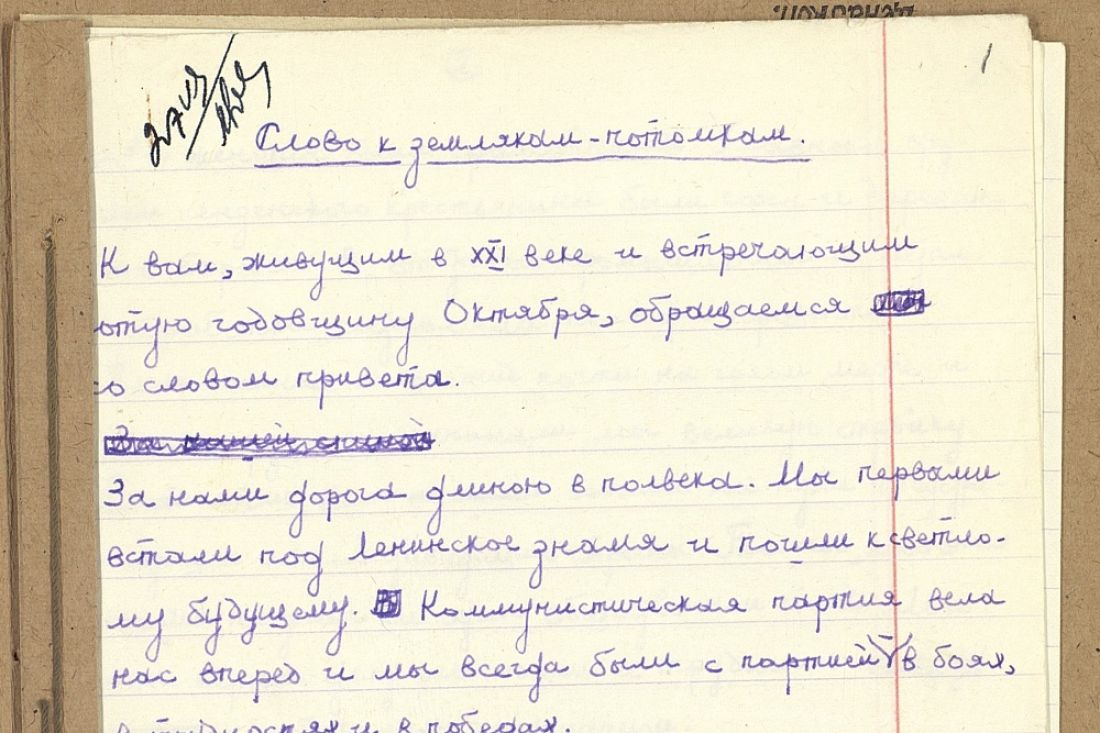 1
Слово к землякам-потомкам.
К вам, живущим в XXI веке и встречающим
отую годовщину Октября, обращаемся
со словом привета.
За нами дорога длиною в полвека. Мы первыми
встали под Ленинское знамя и пошли к светло-
му будущему. Коммунистическая партия вела
нас вперед и мы всегда были с партией в боях,
в трудностях и в победах.